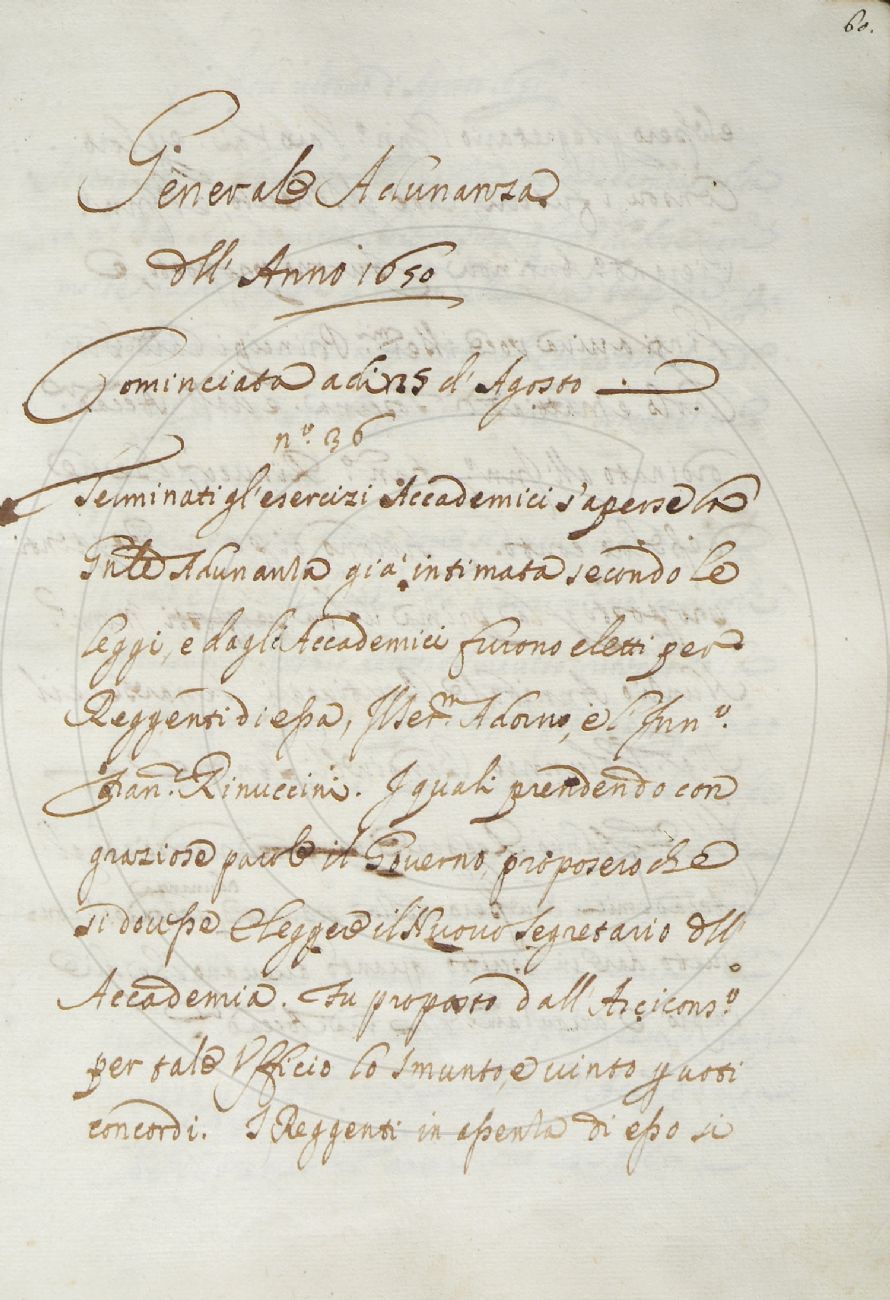 60.
Generale Adunanza
dll' Anno 1650
Cominciata adi 25 d' Agosto
n.º 36
Terminati gl'esercizi Accademici s'aperse la
Gnle Adunanza già intimata secondo le
leggi, e dagli Accademici furono eletti per
Reggenti di essa, Adorno, e l'Inn.º
Fran.c Rinuccini. I quali prendendo con
graziose parole il Governo, proposero che
si dovesse eleggere il Nuovo Segretario dll'
Accademia. Fu proposto dall' Arcicons.º
per tale Vfficio lo Smunto, e vinto p uoti
concordi. I Reggenti in assenza di esso si